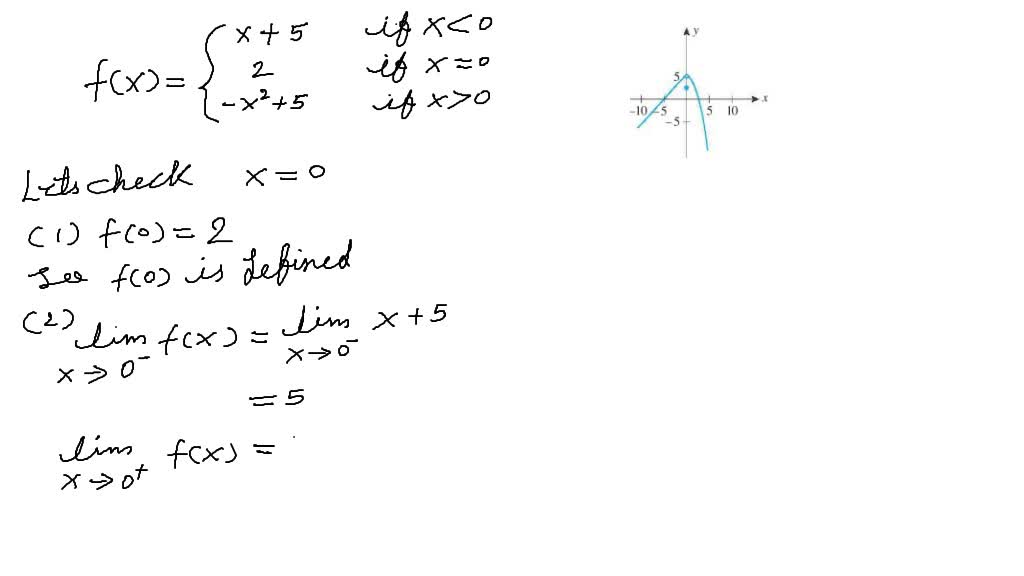 f(x) = { x + 5 if x < 0
2 if x = 0
-x² + 5 if x > 0
y
5
x
-10 -5 5 10
-5
Lets check x = 0
(1) f(0) = 2
See f(0) is defined
(2) lim x→0⁻ f(x) = lim x→0⁻ x + 5
= 5
lim x→0⁺ f(x) =